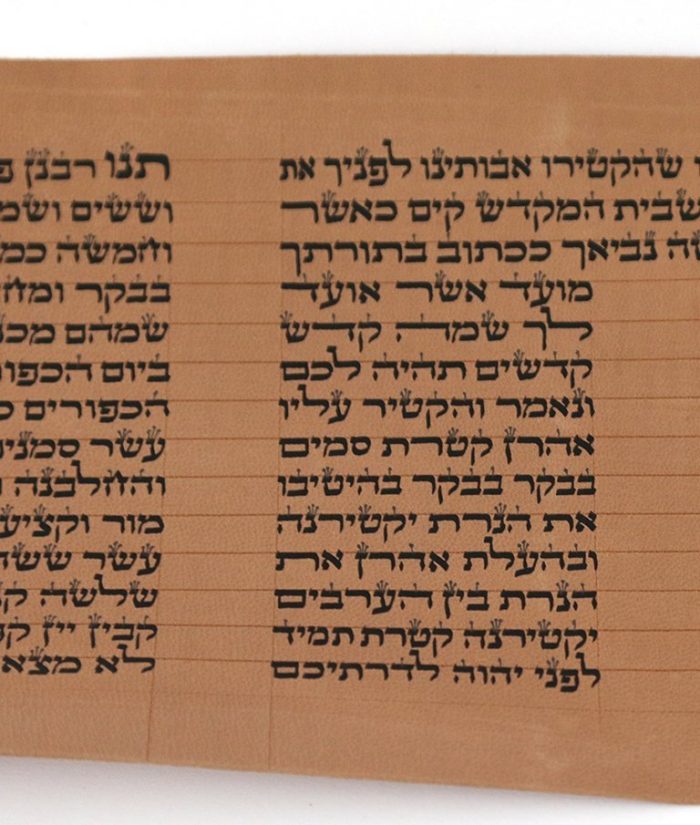 שהקטירו אבותינו לפניך את
שבית המקדש קים כאשר
שה נביאך ככתוב בתורתך
מועד אשר אועד
לך שמה קדש
קדשים תהיה לכם
ונאמר והקטיר עליו
אהרן קטרת סמים
בבקר בבקר בהיטיבו
את הנרת יקטירנה
ובהעלת אהרן את
הנרת בין הערבים
יקטירנה קטרת תמיד
לפני יהוה לדרתיכם
תנו רבנן פ
וששים ושמ
וחמשה כמ
בבקר ומח
שמהם מכנ
ביום הכפור
הכפורים כ
עשר סמני
והחלבנה
מור וקציע
עשר ששה
שלשה ק
קבין יין ק
לא מצא